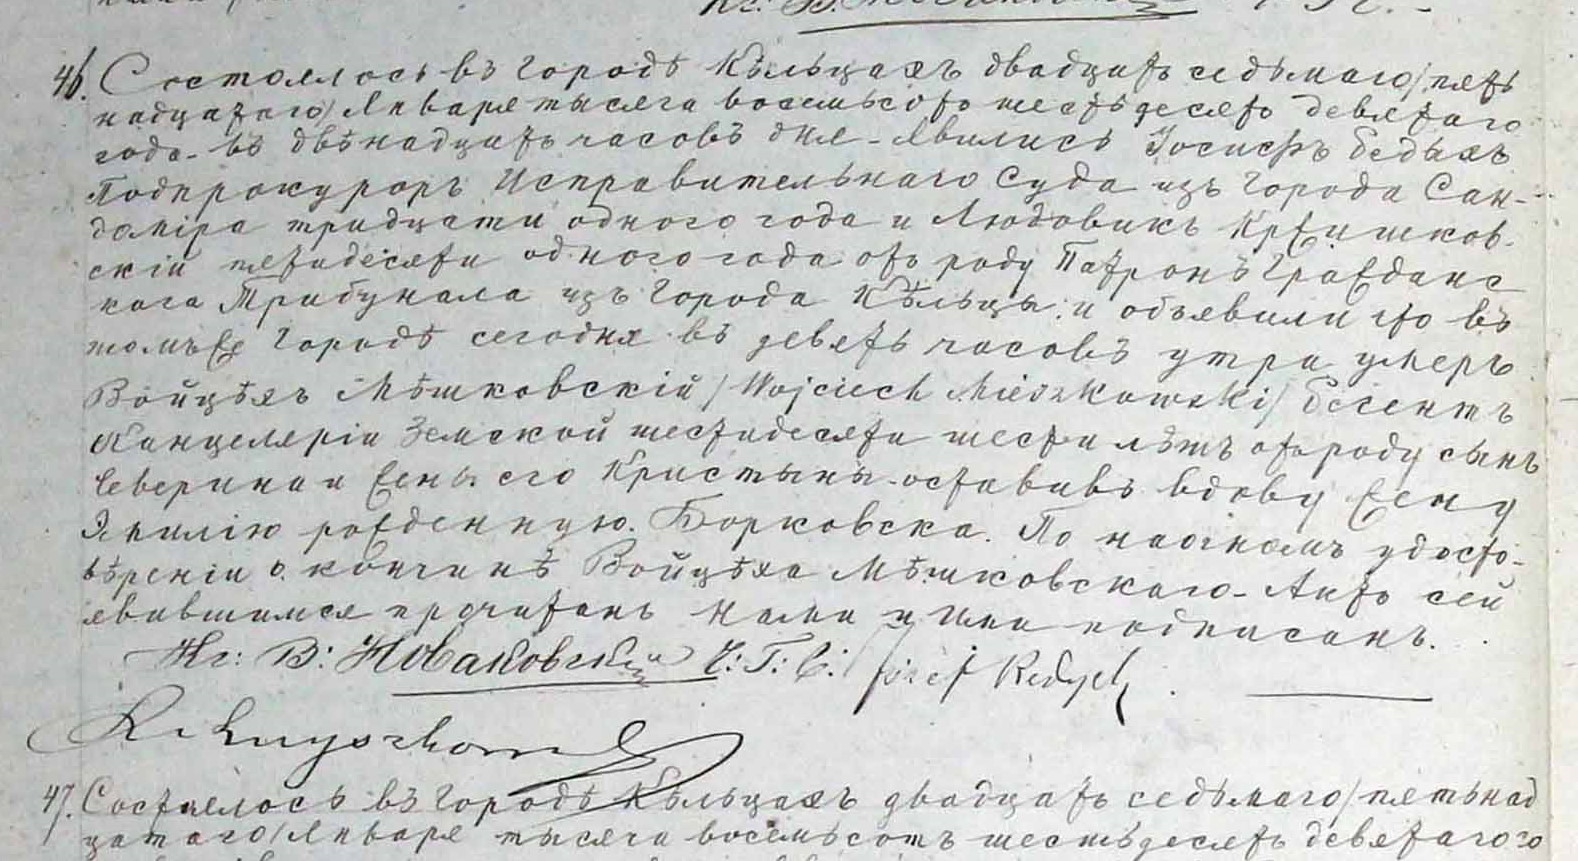 46. Состоялось въ городѣ Кѣльцахъ двадцать седьмаго/пять
надцатаго/Января тысяча восемьсотъ шестьдесятъ девятаго
года въ двѣнадцать часовъ дня - явились Іосифъ
Подпрокуроръ Исправительнаго Суда изъ города Сан-
доміра тридцати одного года и Людовикъ Кржишков-
скій пятидесяти одного года отъ роду Патронъ Гражданс
кого Трибунала изъ города Кѣльцы и объявили что въ
томъже городѣ сегодня въ девять часовъ утра умеръ
Войцѣхъ Мѣшковскій /Wojciech Mieszkowski/
Канцеляріи Земской шестидесяти шести лѣтъ отъ роду сынъ
Северина и жены его Кристыны оставивъ вдову жену
Эмилію рожденную Борковска. По наочномъ удосто-
вѣреніи о кончинѣ Войцѣха Мѣшковскаго - Актъ сей
явившимся прочитанъ нами и ими подписанъ.
Кс: В: Новаковскій Józef
47. Состоялось въ городѣ Кѣльцахъ двадцать седьмаго/пятьнад
цатаго/Января тысяча восемьсотъ шестьдесятъ девятаго го